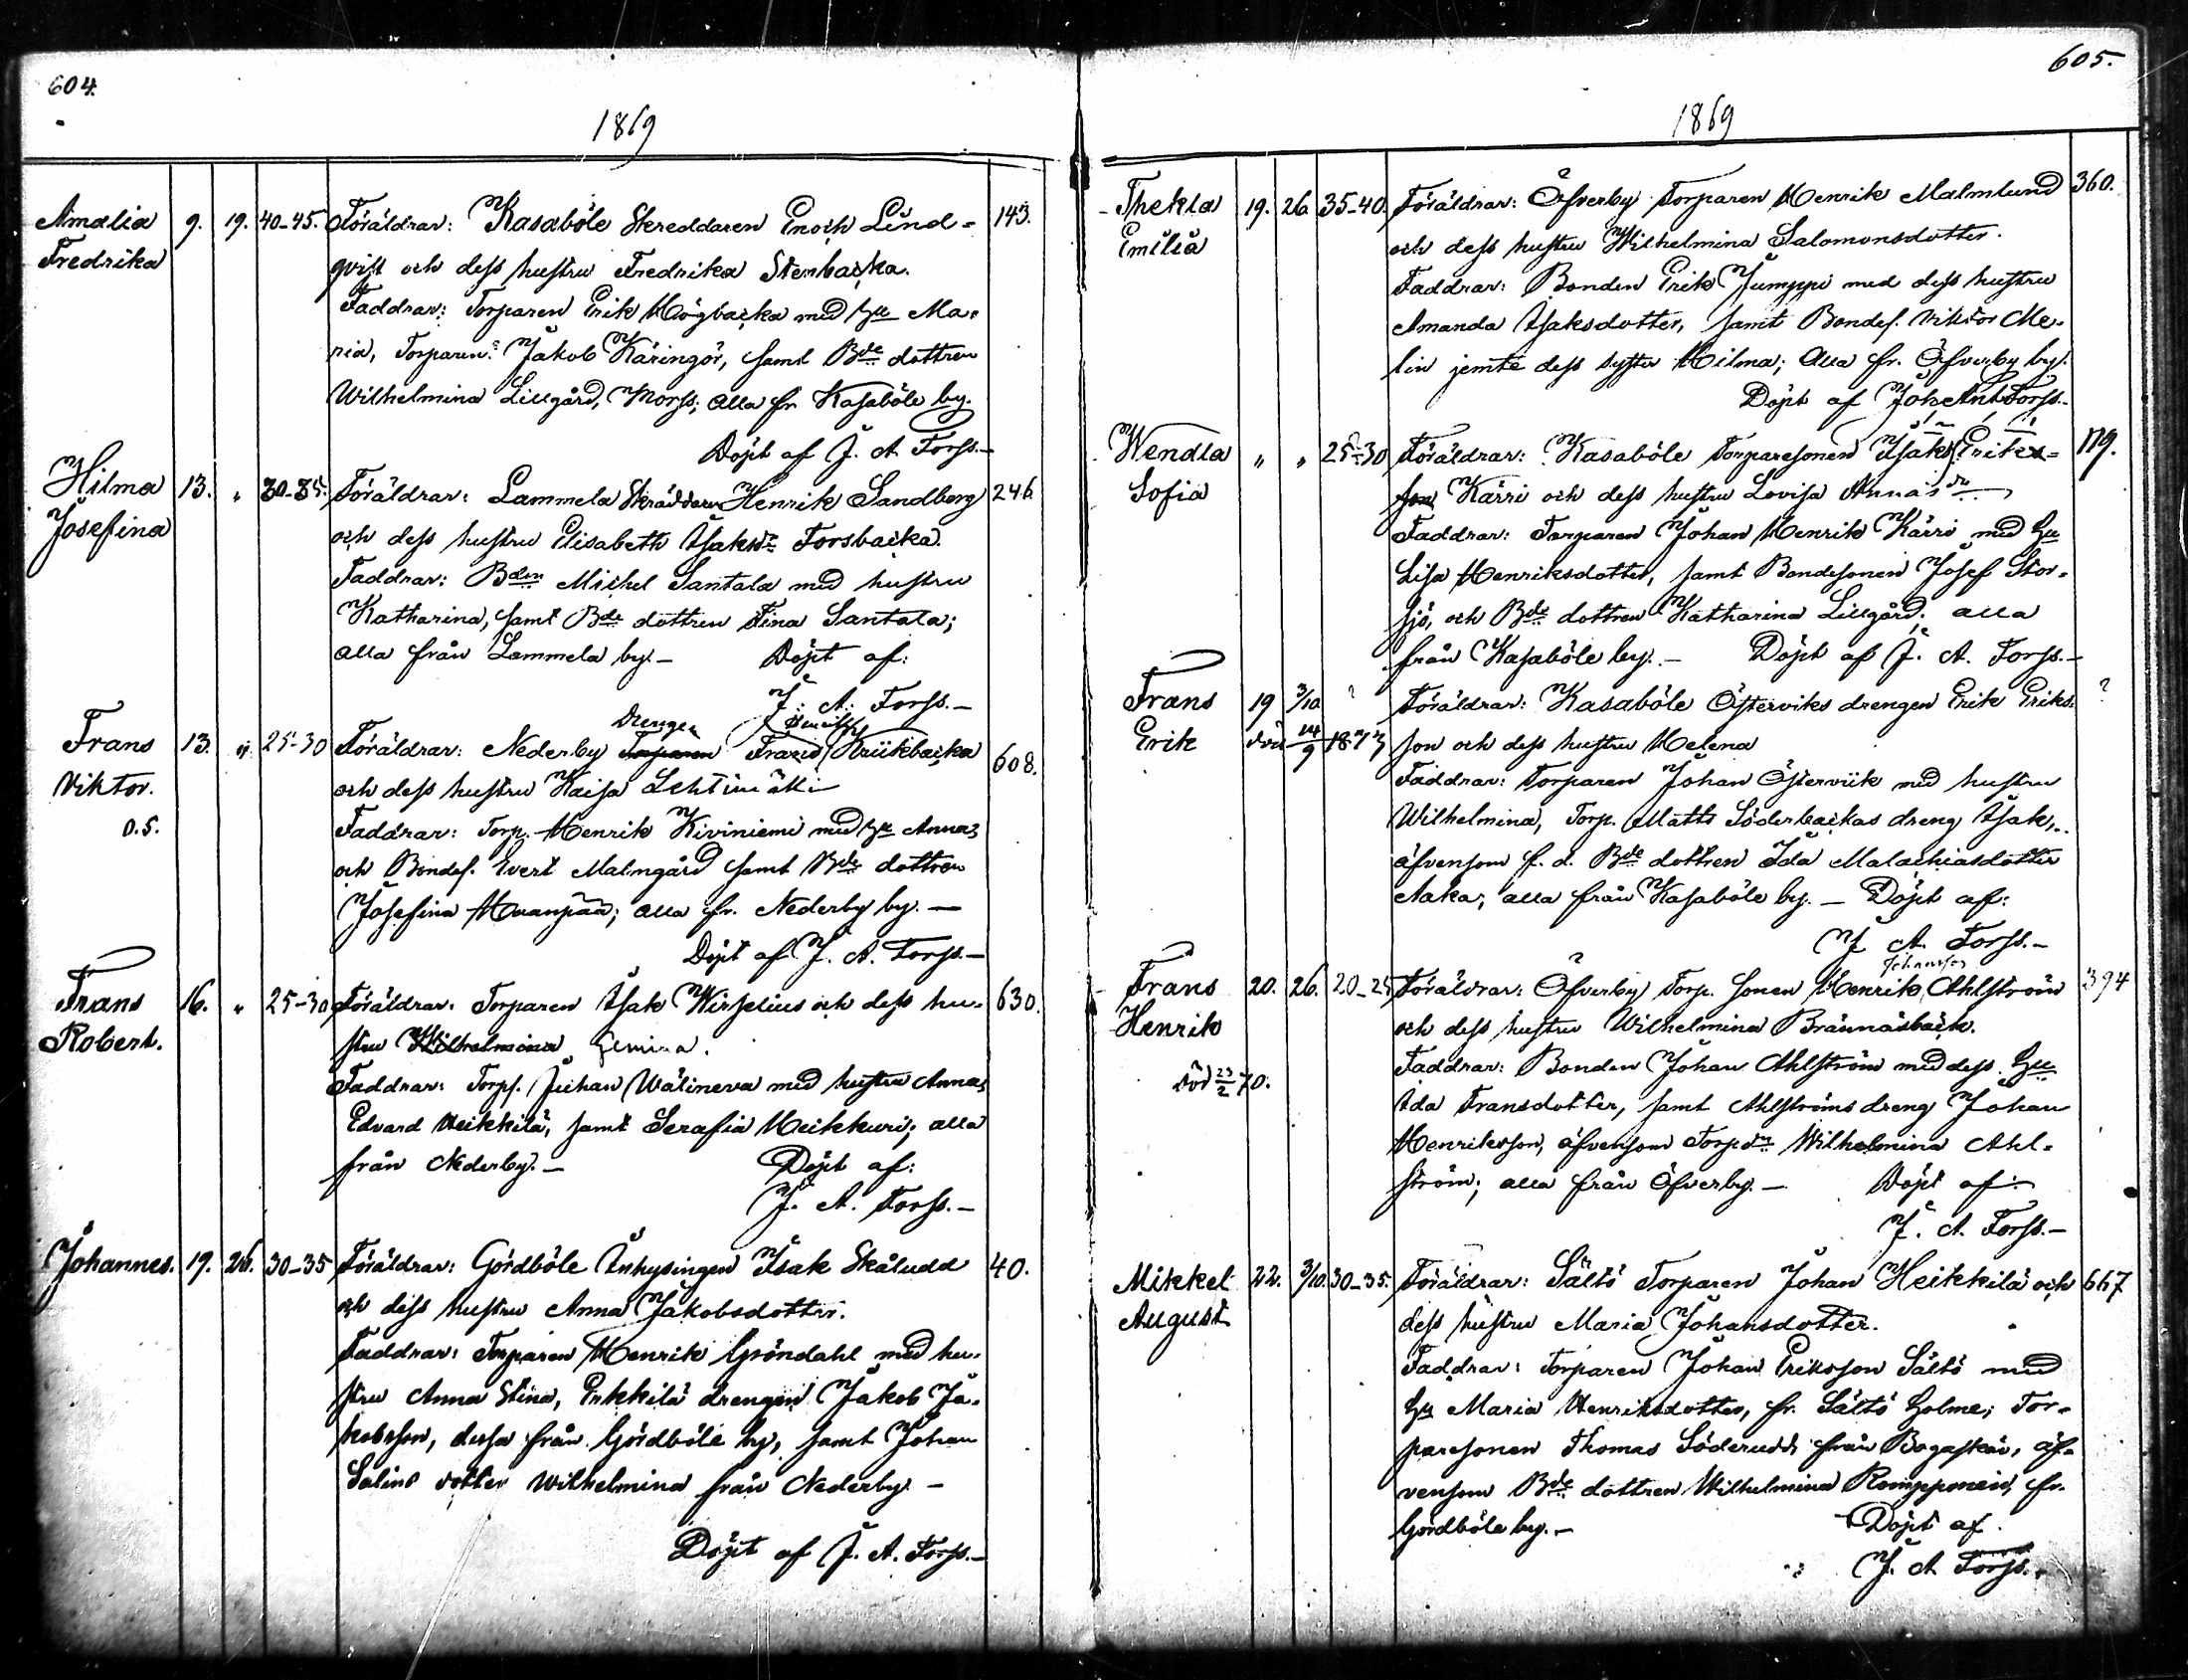 604.
1869
Amalia 9. 19. 40-45. Föräldrar: Kasaböle Skreddaren Enoch Lind- 143.
Fredrika
qvist och dess hustru Fredrika Stenbacka.
Faddrar: Torparen Erik Högbacka med hu Ma-
ria, Torparen Jakob Käringör, samt Bde dottren
Wilhelmina Lillgård, Norss; alla fr. Kasaböle by.
Döpt af J. A. Forss.-
Hilma 13. " 30-35. Föräldrar: Lammela Skräddaren Henrik Sandberg 246
Josefina
och dess hustru Elisabeth Isaksdr Forsbacka.
Faddrar: Bden Michel Santala med hustru
Katharina, samt Bde dottren Fina Santala;
alla från Lammela by.- Döpt af:
J. A. Forss.-
Drengen Henriksson
Frans 13. " 25-30 Föräldrar: Nederby Torparen Frans Kriikbacka 608.
Viktor.
och dess hustru Kaisa Lehtimäki
o.s.
Faddrar: Torp. Henrik Kiviniemi med hu Anna,
och Bondes. Evert Malmgård samt Bde dottren
Josefina Haanpää; alla fr. Nederby by. -
Döpt af J. A. Forss.-
Frans 16. " 25-30 Föräldrar: Torparen Isak Wirzelius och dess hu- 630.
Robert.
stru Wilhelmina Gemina.
Faddrar: Torps. Juhan Wälineva med hustru Anna,
Edvard Heikkilä, samt Serafia Heikkuri; alla
från Nederby.- Döpt af:
J. A. Forss.-
Johannes. 19. 26. 30-35 Föräldrar: Gördböle Inhysingen Isak Skåludd 40.
och dess hustru Anna Jakobsdotter.
Faddrar: Torparen Henrik Gröndahl med hu-
stru Anna Stina, Erkkilä drengen Jakob Ja-
kobsson, dessa från Gördböle by, samt Johan
Salins dotter Wilhelmina från Nederby. -
Döpt af J. A. Forss.-
605.
1869
Thekla 19. 26. 35-40. Föräldrar: Öfverby Torparen Henrik Malmlund 360.
Emilia
och dess hustru Wilhelmina Salomonsdotter.
Faddrar: Bonden Erik Jumppi med dess hustru
Amanda Isaksdotter, samt Bondes. Viktor Me-
lin jemte dess syster Hilma; alla fr. Öfverby by.
Döpt af Joh Ant Forss.-
Wendla " " 25-30 Föräldrar: Kasaböle Torparesonen Isak Eriks- 179.
Sofia
son Kärri och dess hustru Lovisa Annasdr
Faddrar: Torparen Johan Henrik Kärri med hu
Lisa Henriksdotter, samt Bondesonen Josef Stor-
sjö, och Bde dottren Katharina Lillgård; alla
från Kasaböle by. - Döpt af J. A. Forss.-
Frans 19 3/10 ? Föräldrar: Kasaböle Österviks drengen Erik Eriks- ?
Erik död 14/9 1877 son och dess hustru Helena
Faddrar: Torparen Johan Österviik med hustru
Wilhelmina, Torp. Matts Söderbackas dreng Isak,
äfvensom f. d. Bde dottren Ida Malachiasdotter
Aaka; alla från Kasaböle by. - Döpt af:
J A. Forss.-
Johansson
Frans 20. 26. 20-25 Föräldrar: Öfverby Torp. sonen Henrik Ahlström 394
Henrik
och dess hustru Wilhelmina Brännäsback.
död 23/2 70.
Faddrar: Bonden Johan Ahlström med dess hu
Ida Fransdotter, samt Ahlströms dreng Johan
Henriksson, äfvensom Torpdr Wilhelmina Ahl-
ström; alla från Öfverby. - Döpt af:
J. A. Forss.-
Mikkel 22. 3/10. 30-35. Föräldrar: Sältö Torparen Johan Heikkilä och 667
August
dess hustru Maria Johansdotter.
Faddrar: Torparen Johan Eriksson Sältö med
hu Maria Henriksdotter, fr. Sältö holme; Tor-
paresonen Thomas Söderudd från Bogaskär, äf-
vensom Bde dottren Wilhelmina Romppanen, fr.
Gördböle by.- Döpt af
J. A Forss.